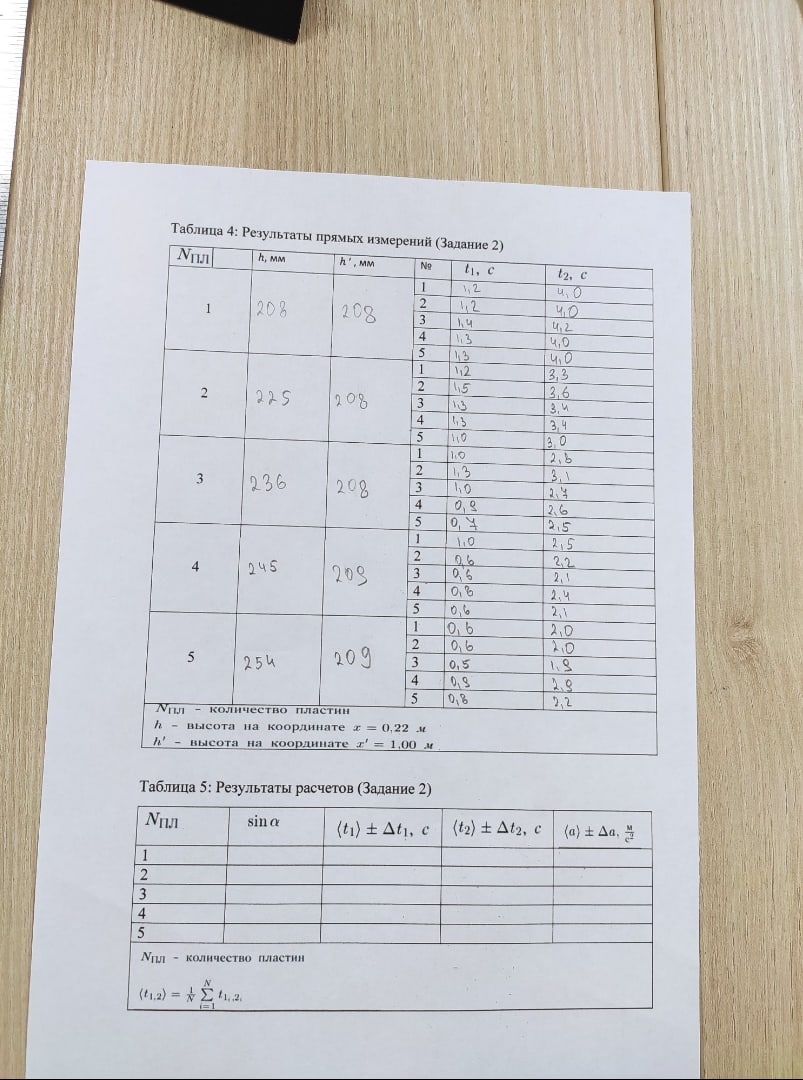 Таблица 4: Результаты прямых измерений (Задание 2)
Nпл h, мм h', мм № t₁, с t₂, с
1 208 208 1 1,2 4,0
2 1,2 4,0
3 1,4 4,2
4 1,3 4,0
5 1,3 4,0
2 225 208 1 1,2 3,3
2 1,5 3,6
3 1,3 3,4
4 1,3 3,4
5 1,0 3,0
3 236 208 1 1,0 2,8
2 1,3 3,1
3 1,0 2,7
4 0,9 2,6
5 0,7 2,5
4 245 209 1 1,0 2,5
2 0,6 2,2
3 0,6 2,1
4 0,8 2,4
5 0,6 2,1
5 254 209 1 0,6 2,0
2 0,6 2,0
3 0,5 1,9
4 0,9 2,9
5 0,8 2,2
Nпл - количество пластин
h - высота на координате x = 0,22 м
h' - высота на координате x' = 1,00 м
Таблица 5: Результаты расчетов (Задание 2)
Nпл sin α ⟨t₁⟩ ± Δt₁, с ⟨t₂⟩ ± Δt₂, с ⟨a⟩ ± Δa, м/с²
1
2
3
4
5
Nпл - количество пластин
⟨t₁,₂⟩ = 1/N ∑ᵢ₌₁ᴺ t₁ᵢ,₂ᵢ